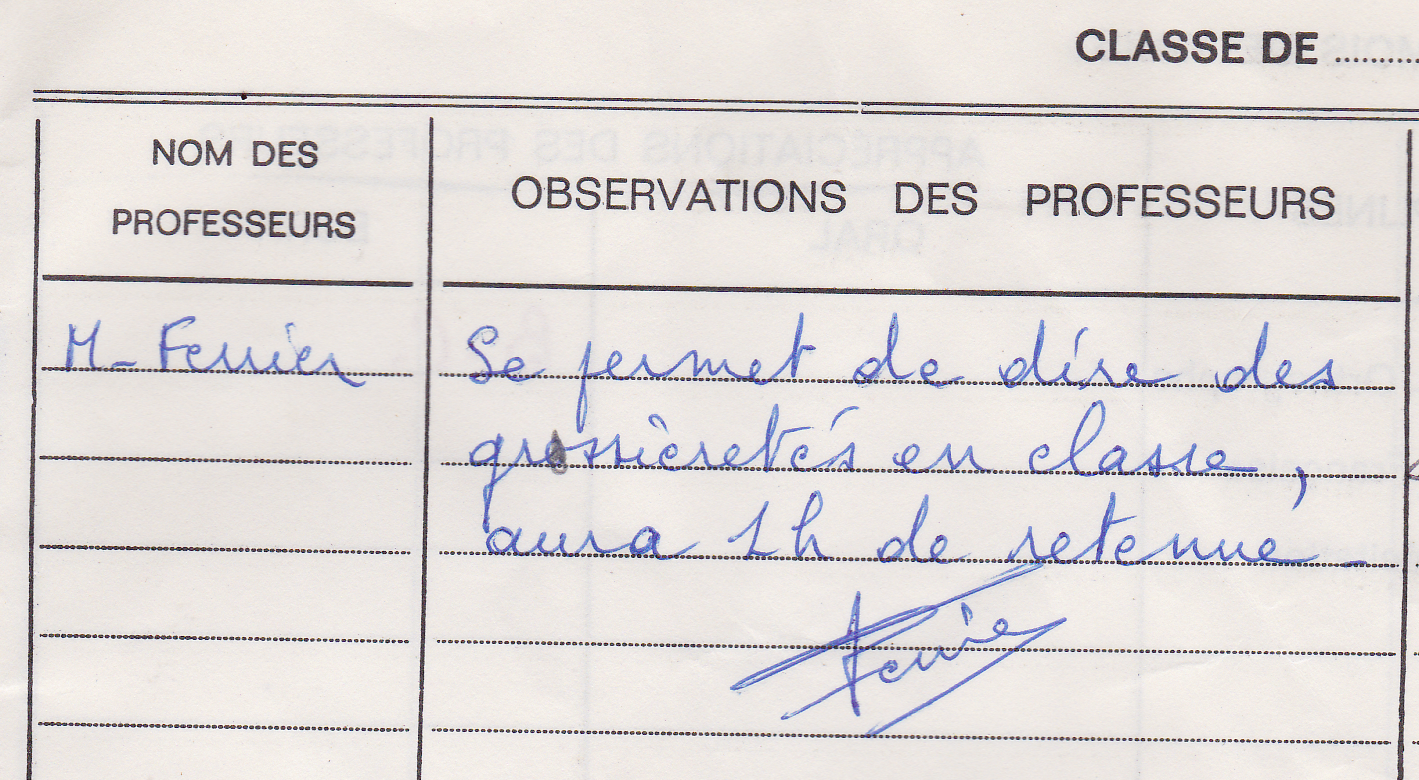 CLASSE DE ..........
NOM DES
PROFESSEURS
OBSERVATIONS DES PROFESSEURS
M - Ferrier
Se permet de dire des
grossièretés en classe,
aura 1h de retenue -
Ferrier